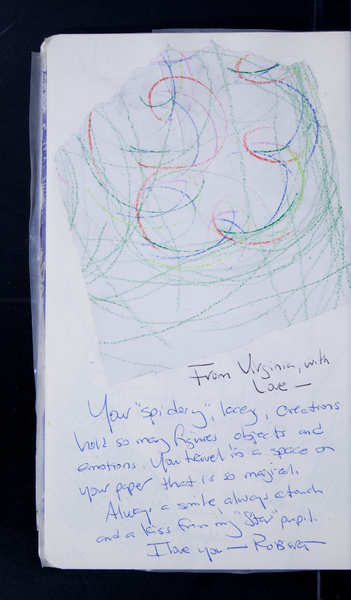 From Virginia, with
Love —
Your "spidery", lacey, creations
hold so many figures objects and
emotions. You travel to a space on
your paper that is so magical.
Always a smile, always a touch
and a kiss from my "Star" pupil.
I love you —